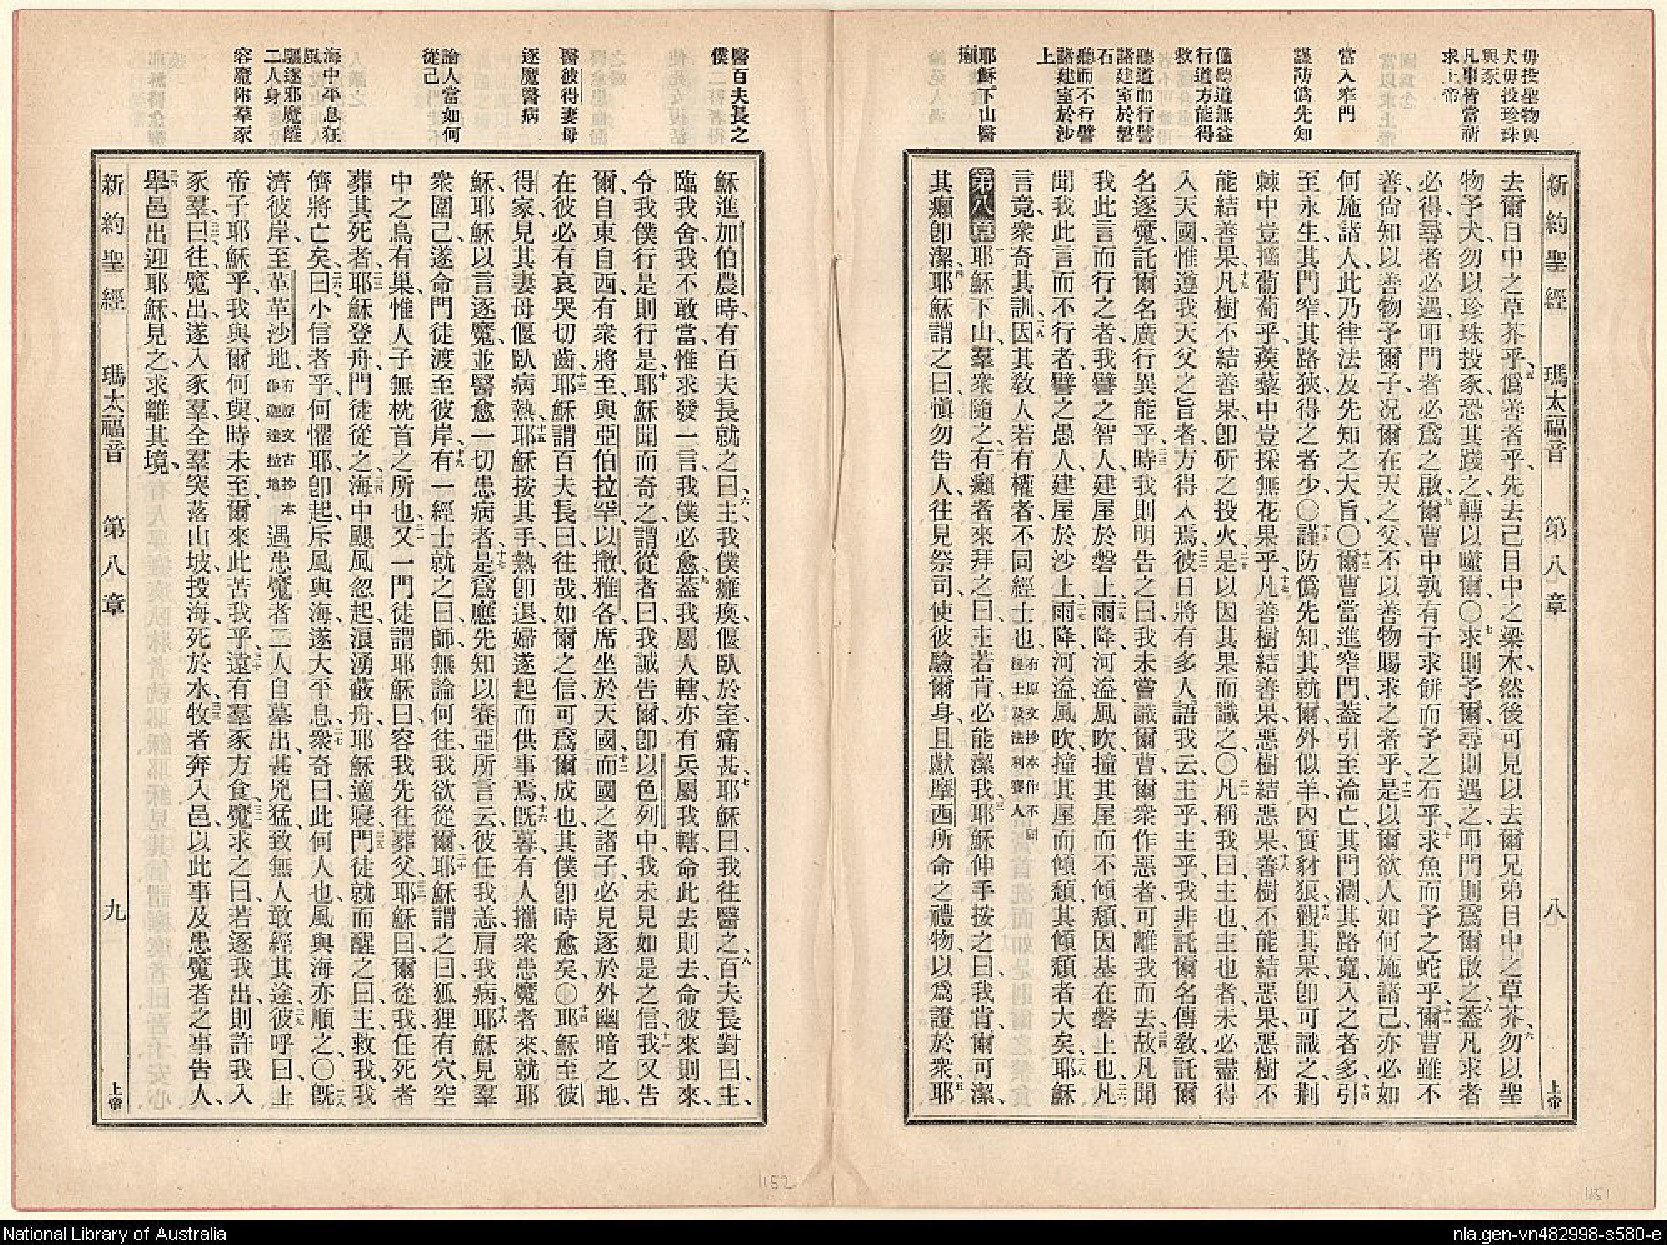 新約聖經 瑪太福音 第八章 八 上帝
毋投聖物與
犬毋投珍珠
與豕
凡事皆當祈
求上帝
當入窄門
謹防僞先知
僅聽道無益
行道方能得
救
聽道而行譬
諸建室於磐
石
聽而不行譬
諸建室於沙
上
耶穌下山醫
癩
去爾目中之草芥乎、五僞善者乎、先去己目中之梁木、然後可見以去爾兄弟目中之草芥、六勿以聖
物予犬、勿以珍珠投豕、恐其踐之、轉以噬爾、〇七求則予爾、尋則遇之、叩門則爲爾啟之、八蓋凡求者
必得、尋者必遇、叩門者必爲之啟、九爾曹中孰有子求餅而予之石乎、十求魚而予之蛇乎、十一爾曹雖不
善、尙知以善物予爾子、况爾在天之父、不以善物賜求之者乎、十二是以爾欲人如何施諸己、亦必如
何施諸人、此乃律法及先知之大旨、〇十三爾曹當進窄門、蓋引至淪亡、其門濶、其路寬、入之者多、十四引
至永生、其門窄、其路狹、得之者少、〇十五謹防僞先知、其就爾、外似羊、內實豺狼、十六觀其果、卽可識之、荆
棘中豈搖葡萄乎、蒺藜中豈採無花果乎、十七凡善樹結善果、惡樹結惡果、十八善樹不能結惡果、惡樹不
能結善果、十九凡樹不結善果、卽斫之投火、二十是以因其果而識之、〇二一凡稱我曰主也主也者、未必盡得
入天國、惟遵我天父之旨者、方得入焉、二二彼日將有多人語我云、主乎主乎、我非託爾名傳敎、託爾
名逐魔、託爾名廣行異能乎、二三時我則明告之曰、我未嘗識爾曹、爾衆作惡者、可離我而去、二四故凡聞
我此言而行之者、我譬之智人、建屋於磐上、二五雨降河溢、風吹撞其屋、而不傾頹、因基在磐上也、二六凡
聞我此言而不行者、譬之愚人、建屋於沙上、二七雨降河溢、風吹撞其屋而傾頹、其傾頹者大矣、二八耶穌
言竟、衆奇其訓、二九因其敎人若有權者、不同經士也、有原文抄本作不同經士及法利賽人
第八章 一耶穌下山、羣衆隨之、二有癩者來拜之曰、主若肯、必能潔我、三耶穌伸手按之曰、我肯、爾可潔、
其癩卽潔、四耶穌謂之曰、愼勿告人、往見祭司、使彼驗爾身、且獻摩西所命之禮物、以爲證於衆、五耶
醫百夫長之
僕
醫彼得妻母
逐魔醫病
論人當如何
從己
海中平息狂
風
驅逐邪魔離
二人身
容魔附羣豕
穌進加伯農時、有百夫長就之曰、六主、我僕癱瘓偃臥於室、痛甚、七耶穌曰、我往醫之、八百夫長對曰、主、
臨我舍、我不敢當、惟求發一言、我僕必愈、九蓋我屬人轄、亦有兵屬我轄、命此去則去、命彼來則來、
令我僕行是則行是、十耶穌聞而奇之、謂從者曰、我誠告爾、卽以色列中、我未見如是之信、十一我又告
爾、自東自西、有衆將至、與亞伯拉罕以撒雅各、席坐於天國、十二而國之諸子、必見逐於外幽暗之地、
在彼必有哀哭切齒、十三耶穌謂百夫長曰、往哉、如爾之信、可爲爾成也、其僕卽時愈矣、〇十四耶穌至彼
得家、見其妻母偃臥病熱、十五耶穌按其手、熱卽退、婦遂起而供事焉、十六旣暮、有人攜衆患魔者來就耶
穌、耶穌以言逐魔、並醫愈一切患病者、十七是爲應先知以賽亞所言云、彼任我恙、肩我病、十八耶穌見羣
衆圍己、遂命門徒渡至彼岸、十九有一經士就之曰、師、無論何往、我欲從爾、二十耶穌謂之曰、狐狸有穴、空
中之鳥有巢、惟人子無枕首之所也、二一又一門徒謂耶穌曰、容我先往葬父、二二耶穌曰、爾從我、任死者
葬其死者、二三耶穌登舟、門徒從之、二四海中颶風忽起、浪湧蔽舟、耶穌適寢、二五門徒就而醒之曰、主救我、我
儕將亡矣、二六曰、小信者乎、何懼耶、卽起、斥風與海、遂大平息、二七衆奇曰、此何人也、風與海亦順之、〇二八旣
濟彼岸、至革革沙地、有原文古抄本作迦達拉地遇患魔者二人、自墓出、甚兇猛、致無人敢經其途、二九彼呼曰、上
帝子耶穌乎、我與爾何與、時未至、爾來此苦我乎、三十遠有羣豕方食、三一魔求之曰、若逐我出、則許我入
豕羣、三二曰往、魔出、遂入豕羣、全羣突落山坡、投海、死於水、三三牧者奔入邑、以此事及患魔者之事告人、
三四舉邑出迎耶穌、見之、求離其境、
新約聖經 瑪太福音 第八章 九 上帝
152
151
National Library of Australia
nla.gen-vn482998-s580-e